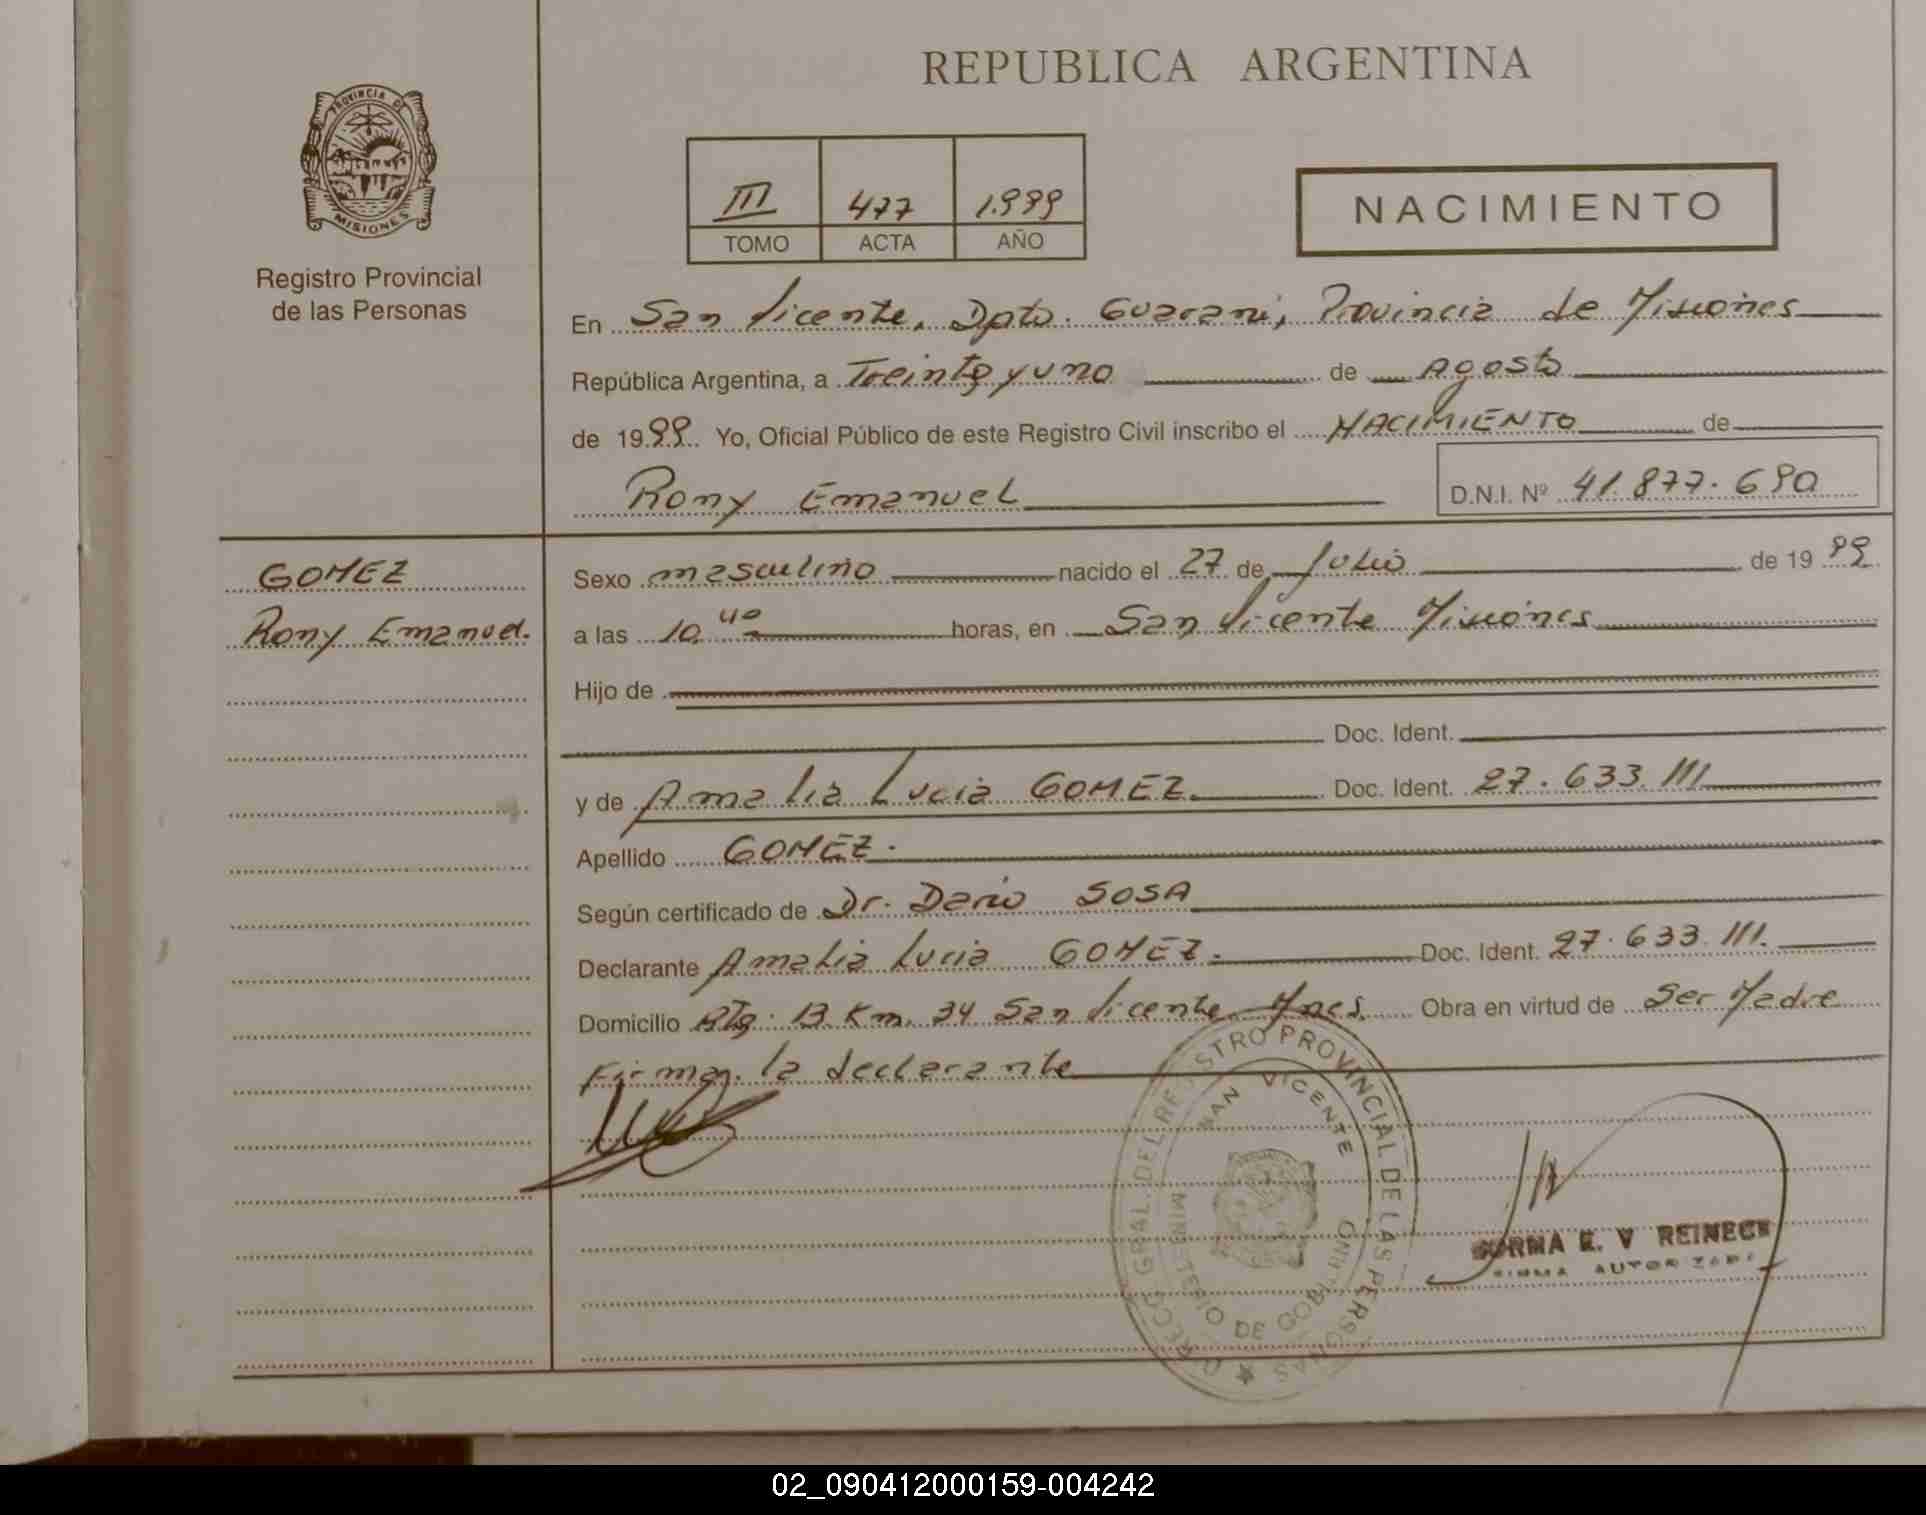 REPUBLICA ARGENTINA
PROVINCIA DE
MISIONES
Registro Provincial
de las Personas
III 477 1.999
TOMO ACTA AÑO
NACIMIENTO
En San Vicente, Dpto. Guarani, Provincia de Misiones
República Argentina, a Treinta y uno de Agosto
de 1999. Yo, Oficial Público de este Registro Civil inscribo el NACIMIENTO de
Rony Emanuel D.N.I. Nº 41.877.690
GOMEZ
Rony Emanuel.
Sexo masculino nacido el 27 de Julio de 1999
a las 10,40 horas, en San Vicente Misiones
Hijo de
Doc. Ident.
y de Amalia Lucia GOMEZ. Doc. Ident. 27.633.111
Apellido GOMEZ.
Según certificado de Dr. Dario SOSA
Declarante Amalia Lucia GOMEZ. Doc. Ident. 27.633.111.
Domicilio Rta. 13 Km. 34 San Vicente Mnes. Obra en virtud de Ser Madre
Firma la declarante
DIRECC. GRAL. DEL REGISTRO PROVINCIAL DE LAS PERSONAS
SAN VICENTE
MINISTERIO DE GOBIERNO
NORMA E. V REINECK
FIRMA AUTORIZADA
02_090412000159-004242